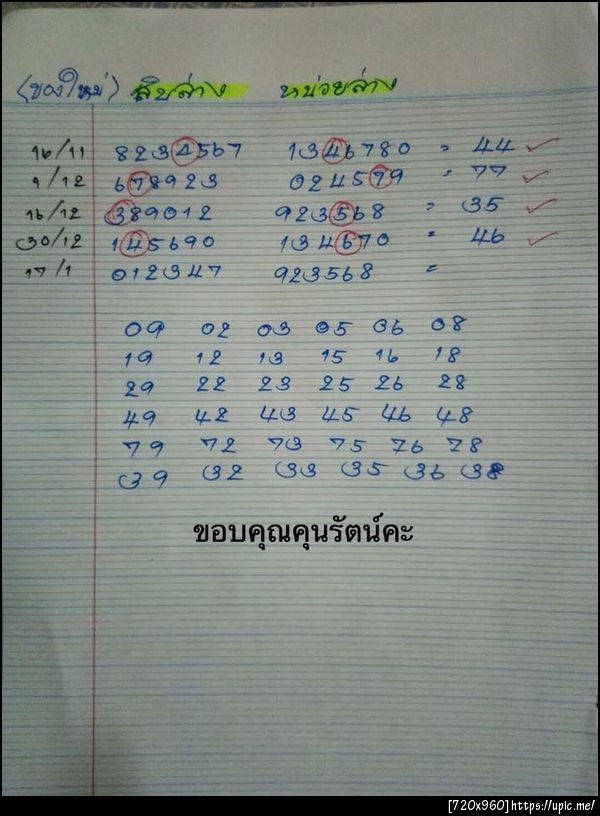 (ของใหม่) สิบล่าง หน่วยล่าง
16/11 8234567 1346780 = 44 ✓
1/12 678923 024579 = 77 ✓
16/12 389012 923568 = 35 ✓
30/12 145690 134670 = 46 ✓
17/1 012347 923568 =
09 02 03 05 06 08
19 12 13 15 16 18
29 22 23 25 26 28
49 42 43 45 46 48
79 72 73 75 76 78
39 32 33 35 36 38
ขอบคุณคุนรัตน์คะ
[720x960]https://upic.me/